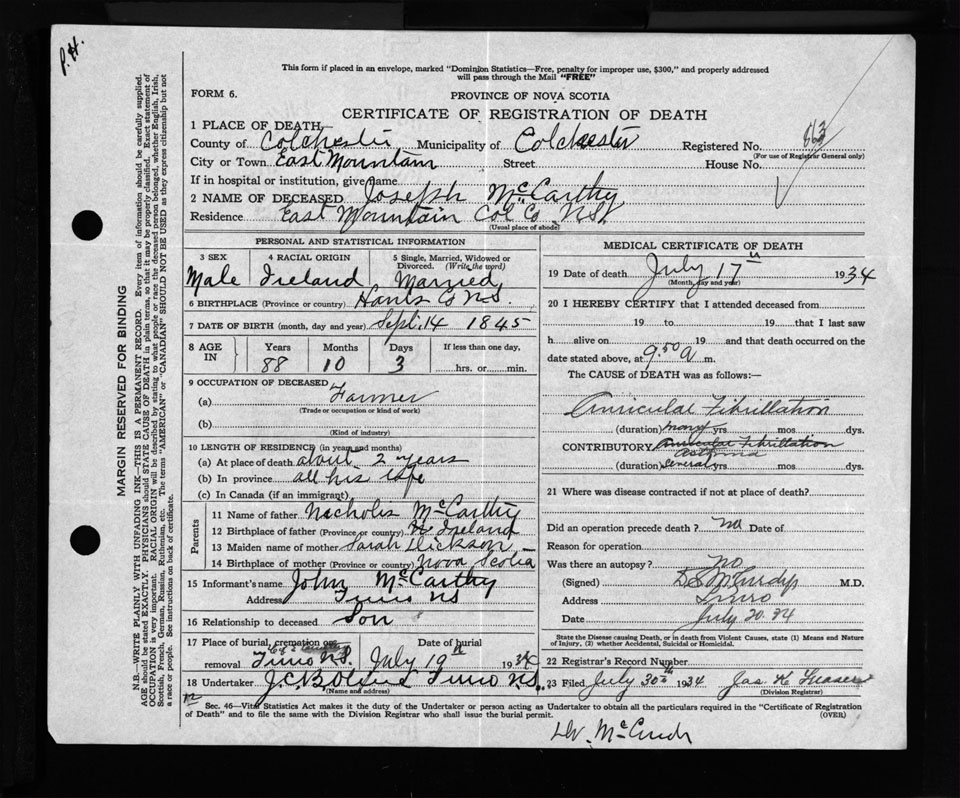 P.H.
This form if placed in an envelope, marked "Dominion Statistics—Free, penalty for improper use, $300," and properly addressed
will pass through the Mail "FREE"
FORM 6. PROVINCE OF NOVA SCOTIA
CERTIFICATE OF REGISTRATION OF DEATH
1 PLACE OF DEATH
County of Colchester Municipality of Colchester Registered No. 863
(For use of Registrar General only)
City or Town East Mountain Street House No.
If in hospital or institution, give name
2 NAME OF DECEASED Joseph McCarthy
Residence East Mountain Col Co. N.S.
(Usual place of abode)
PERSONAL AND STATISTICAL INFORMATION
3 SEX 4 RACIAL ORIGIN 5 Single, Married, Widowed or Divorced. (Write the word)
Male Ireland Married
6 BIRTHPLACE (Province or country) Hants Co N.S.
7 DATE OF BIRTH (month, day and year) Sept. 14 1845
8 AGE IN Years Months Days If less than one day,
88 10 3 hrs. or min.
9 OCCUPATION OF DECEASED
(a) Farmer
(Trade or occupation or kind of work)
(b)
(Kind of industry)
10 LENGTH OF RESIDENCE (in years and months)
(a) At place of death about 2 years
(b) In province all his life
(c) In Canada (if an immigrant)
Parents
11 Name of father Nicholis McCarthy
12 Birthplace of father (Province or country) Ireland
13 Maiden name of mother Sarah Dickson
14 Birthplace of mother (Province or country) Nova Scotia
15 Informant's name John McCarthy
Address Truro NS
16 Relationship to deceased Son
17 Place of burial, cremation or removal Truro N.S. Date of burial July 19th 1934
18 Undertaker J.C. Truro N.S.
(Name and address)
MEDICAL CERTIFICATE OF DEATH
19 Date of death July 17th 1934
(Month, day and year)
20 I HEREBY CERTIFY that I attended deceased from
19 to 19 that I last saw
h alive on 19 and that death occurred on the
date stated above, at 9.50 a m.
The CAUSE of DEATH was as follows:—
Auricular Fibrillation
(duration) many yrs mos dys.
CONTRIBUTORY Auricular Fibrillation
Asthma
(duration) several yrs mos dys.
21 Where was disease contracted if not at place of death?
Did an operation precede death? no Date of
Reason for operation
Was there an autopsy? no
(Signed) M.D.
Address Truro
Date July 20. 34
State the Disease causing Death, or in death from Violent Causes, state (1) Means and Nature
of Injury, (2) whether Accidental, Suicidal or Homicidal.
22 Registrar's Record Number
23 Filed July 30th 1934 Jas K
(Division Registrar)
Sec. 46—Vital Statistics Act makes it the duty of the Undertaker or person acting as Undertaker to obtain all the particulars required in the "Certificate of Registration
of Death" and to file the same with the Division Registrar who shall issue the burial permit. (OVER)
MARGIN RESERVED FOR BINDING
N.B.—WRITE PLAINLY WITH UNFADING INK—THIS IS A PERMANENT RECORD. Every item of information should be carefully supplied.
AGE should be stated EXACTLY. PHYSICIANS should STATE CAUSE OF DEATH in plain terms, so that it may be properly classified. Exact statement of
OCCUPATION is very important. RACIAL ORIGIN will be described by stating to what people or race the deceased person belonged, whether English, Irish,
Scottish, French, German, Russian, Ruthenian, etc. The terms "AMERICAN" or "CANADIAN" SHOULD NOT BE USED as they express citizenship but not
a race or people. See instructions on back of certificate.